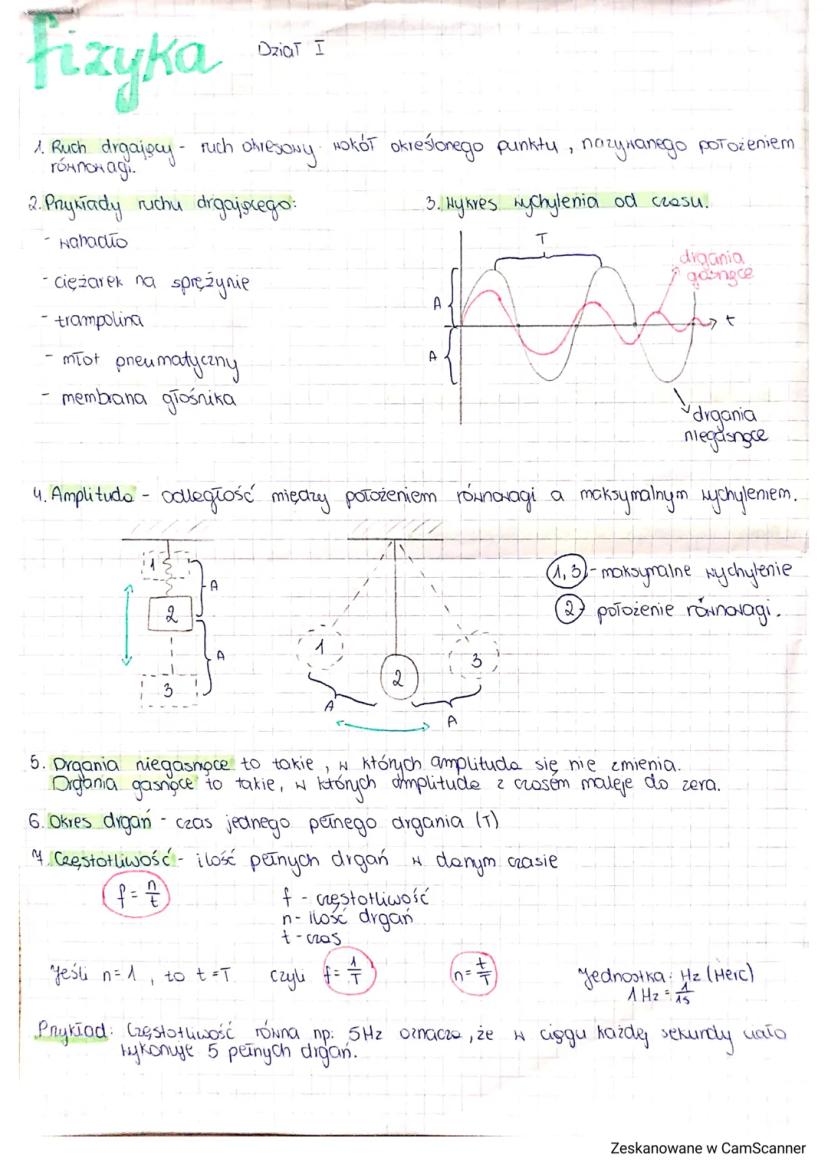 fizyka Dział I
1. Ruch drgający - ruch okresowy wokół określonego punktu, nazywanego położeniem
równowagi.
2. Przykłady ruchu drgającego:
- wahadło
- ciężarek na sprężynie
- trampolina
- młot pneumatyczny
- membrana głośnika
3. Wykres wychylenia od czasu.
T
drgania
gasnące
A
t
A
drgania
niegasnące
4. Amplituda - odległość między położeniem równowagi a maksymalnym wychyleniem.
1
A
2
A
3
1
2
3
A
A
1, 3 - maksymalne wychylenie
2 - położenie równowagi.
5. Drgania niegasnące to takie, w których amplituda się nie zmienia.
Drgania gasnące to takie, w których amplituda z czasem maleje do zera.
6. Okres drgań - czas jednego pełnego drgania (T)
7. Częstotliwość - ilość pełnych drgań w danym czasie
f = n/t
f - częstotliwość
n - ilość drgań
t - czas
Jeśli n = 1, to t = T czyli f = 1/T n = t/T Jednostka: Hz (Herc)
1 Hz = 1/1s
Przykład: Częstotliwość równa np. 5Hz oznacza, że w ciągu każdej sekundy ciało
wykonuje 5 pełnych drgań.
Zeskanowane w CamScanner